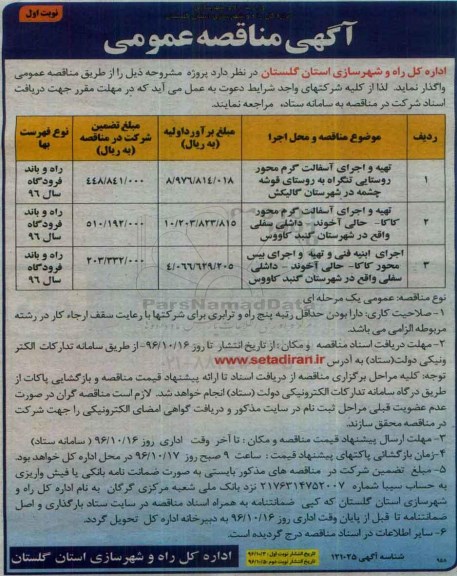 نوبت اول
آگهی مناقصه عمومی
اداره کل راه و شهرسازی استان گلستان در نظر دارد پروژه مشروحه ذیل را از طریق مناقصه عمومی
واگذار نماید. لذا از کلیه شرکتهای واجد شرایط دعوت به عمل می آید که در مهلت مقرر جهت دریافت
اسناد شرکت در مناقصه به سامانه ستاد، مراجعه نمایند.
ردیف موضوع مناقصه و محل اجرا مبلغ برآورداولیه (به ریال) مبلغ تضمین شرکت در مناقصه (به ریال) نوع فهرست بها
۱ تهیه و اجرای آسفالت گرم محور روستایی تنگراه به روستای قوشه چشمه در شهرستان گالیکش ۸/۹۷۶/۸۱۴/۰۱۸ ۴۴۸/۸۴۱/۰۰۰ راه و باند فرودگاه سال ۹۶
۲ تهیه و اجرای آسفالت گرم محور کاکا- حالی آخوند - داشلی سفلی واقع در شهرستان گنبد کاووس ۱۰/۲۰۳/۸۲۳/۸۱۵ ۵۱۰/۱۹۲/۰۰۰ راه و باند فرودگاه سال ۹۶
۳ اجرای ابنیه فنی و تهیه و اجرای بیس محور کاکا- حالی آخوند - داشلی سفلی واقع در شهرستان گنبد کاووس ۴/۰۶۶/۶۲۹/۲۰۵ ۲۰۳/۳۳۲/۰۰۰ راه و باند فرودگاه سال ۹۶
نوع مناقصه: عمومی یک مرحله ای
۱- صلاحیت کاری: دارا بودن حداقل رتبه پنج راه و ترابری برای شرکتها با رعایت سقف ارجاء کار در رشته
مربوطه الزامی می باشد.
۲- مهلت دریافت اسناد مناقصه و مکان: از تاریخ انتشار تا روز ۹۶/۱۰/۱۶- از طریق سامانه تدارکات الکتر
ونیکی دولت(ستاد) به آدرس www.setadiran.ir
توجه: کلیه مراحل برگزاری مناقصه از دریافت اسناد تا ارائه پیشنهاد قیمت مناقصه و بازگشایی پاکات از
طریق درگاه سامانه تدارکات الکترونیکی دولت (ستاد) انجام خواهد شد. لازم است مناقصه گران در صورت
عدم عضویت قبلی مراحل ثبت نام در سایت مذکور و دریافت گواهی امضای الکترونیکی را جهت شرکت
در مناقصه محقق سازند.
۳- مهلت ارسال پیشنهاد قیمت مناقصه و مکان: تا آخر وقت اداری روز ۹۶/۱۰/۱۶ ( سامانه ستاد)
۴- زمان بازگشائی پاکتهای پیشنهاد قیمت: ساعت ۹ صبح روز ۹۶/۱۰/۱۷ در محل اداره کل خواهد بود.
۵- مبلغ تضمین شرکت در مناقصه های مذکور بایستی به صورت ضمانت نامه بانکی یا فیش واریزی
به حساب سیبا شماره ۲۱۷۶۳۱۴۷۵۲۰۰۷ نزد بانک ملی شعبه مرکزی گرگان به نام اداره کل راه و
شهرسازی استان گلستان که کپی ضمانتنامه به همراه اسناد مناقصه در سایت ستاد بارگذاری و اصل
ضمانتنامه تا قبل از پایان وقت اداری روز ۹۶/۱۰/۱۶ به دبیرخانه اداره کل تحویل گردد.
۶- سایر اطلاعات در اسناد مناقصه درج گردیده است.
شناسه آگهی ۱۲۱۰۲۵
تاریخ انتشار نوبت اول: ۹۶/۱۰/۳
تاریخ انتشار نوبت دوم: ۹۶/۱۰/۵
اداره کل راه و شهرسازی استان گلستان
ParsNamadData